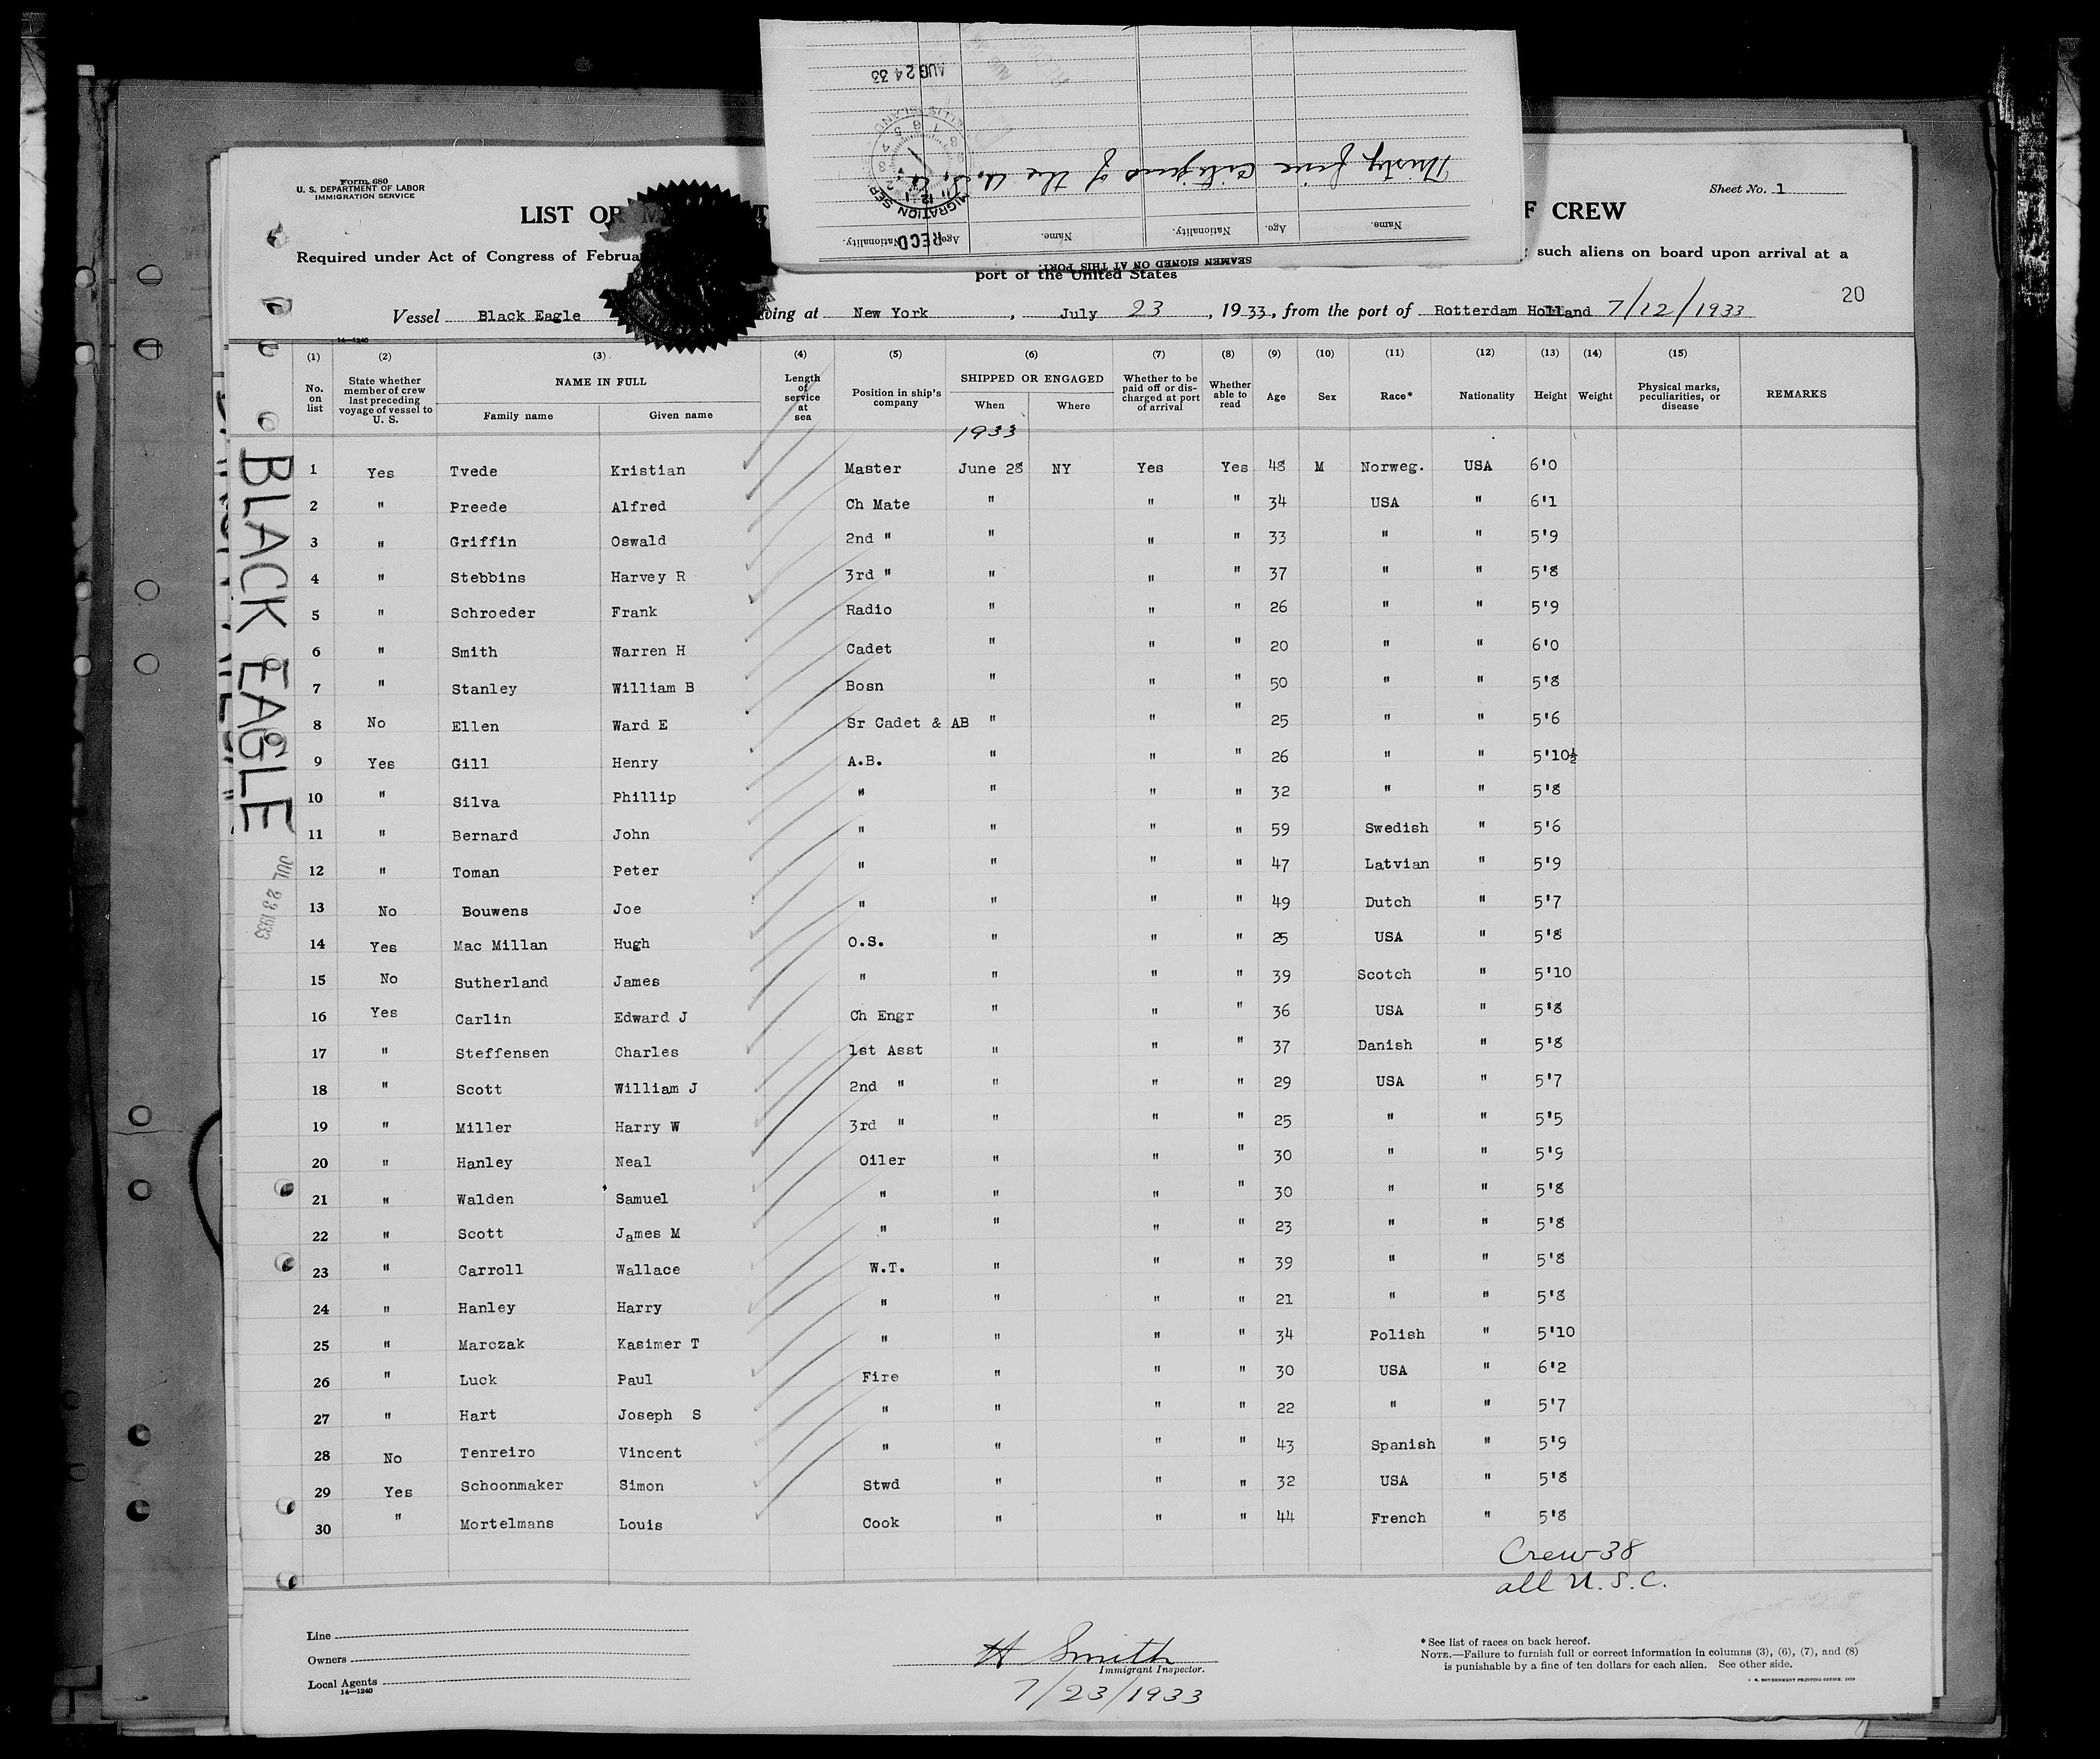 Form 680
U. S. DEPARTMENT OF LABOR
IMMIGRATION SERVICE
Sheet No. 1
LIST OR
F CREW
Required under Act of Congress of Februa
such aliens on board upon arrival at a
port of the United States
AUG 24 33
Thirty five citizens of the U. S. A.
REC'D
Name. Age. Nationality. Name. Age. Nationality.
SEAMEN SIGNED ON AT THIS PORT.
20
Vessel Black Eagle ving at New York, July 23, 1933, from the port of Rotterdam Holland 7/12/1933
14—1240
(1) (2) (3) (4) (5) (6) (7) (8) (9) (10) (11) (12) (13) (14) (15)
No. on list
State whether member of crew last preceding voyage of vessel to U. S.
NAME IN FULL
Family name Given name
Length of service at sea
Position in ship's company
SHIPPED OR ENGAGED
When Where
Whether to be paid off or discharged at port of arrival
Whether able to read
Age Sex Race* Nationality Height Weight
Physical marks, peculiarities, or disease
REMARKS
1933
1 Yes Tvede Kristian Master June 28 NY Yes Yes 48 M Norweg. USA 6'0
2 " Preede Alfred Ch Mate " " " 34 USA " 6'1
3 " Griffin Oswald 2nd " " " " 33 " " 5'9
4 " Stebbins Harvey R 3rd " " " " 37 " " 5'8
5 " Schroeder Frank Radio " " " 26 " " 5'9
6 " Smith Warren H Cadet " " " 20 " " 6'0
7 " Stanley William B Bosn " " " 50 " " 5'8
8 No Ellen Ward E Sr Cadet & AB " " " 25 " " 5'6
9 Yes Gill Henry A.B. " " " 26 " " 5'10½
10 " Silva Phillip " " " " 32 " " 5'8
11 " Bernard John " " " " 59 Swedish " 5'6
12 " Toman Peter " " " " 47 Latvian " 5'9
13 No Bouwens Joe " " " " 49 Dutch " 5'7
14 Yes Mac Millan Hugh O.S. " " " 25 USA " 5'8
15 No Sutherland James " " " " 39 Scotch " 5'10
16 Yes Carlin Edward J Ch Engr " " " 36 USA " 5'8
17 " Steffensen Charles 1st Asst " " " 37 Danish " 5'8
18 " Scott William J 2nd " " " " 29 USA " 5'7
19 " Miller Harry W 3rd " " " " 25 " " 5'5
20 " Hanley Neal Oiler " " " 30 " " 5'9
21 " Walden Samuel " " " " 30 " " 5'8
22 " Scott James M " " " " 23 " " 5'8
23 " Carroll Wallace W.T. " " " 39 " " 5'8
24 " Hanley Harry " " " " 21 " " 5'8
25 " Marczak Kasimer T " " " " 34 Polish " 5'10
26 " Luck Paul Fire " " " 30 USA " 6'2
27 " Hart Joseph S " " " " 22 " " 5'7
28 No Tenreiro Vincent " " " " 43 Spanish " 5'9
29 Yes Schoonmaker Simon Stwd " " " 32 USA " 5'8
30 " Mortelmans Louis Cook " " " 44 French " 5'8
BLACK EAGLE
JUL 23 1933
Crew 38
all U. S. C.
Line
Owners
Local Agents
14—1240
H Smith
Immigrant Inspector.
7/23/1933
* See list of races on back hereof.
NOTE.—Failure to furnish full or correct information in columns (3), (6), (7), and (8)
is punishable by a fine of ten dollars for each alien. See other side.